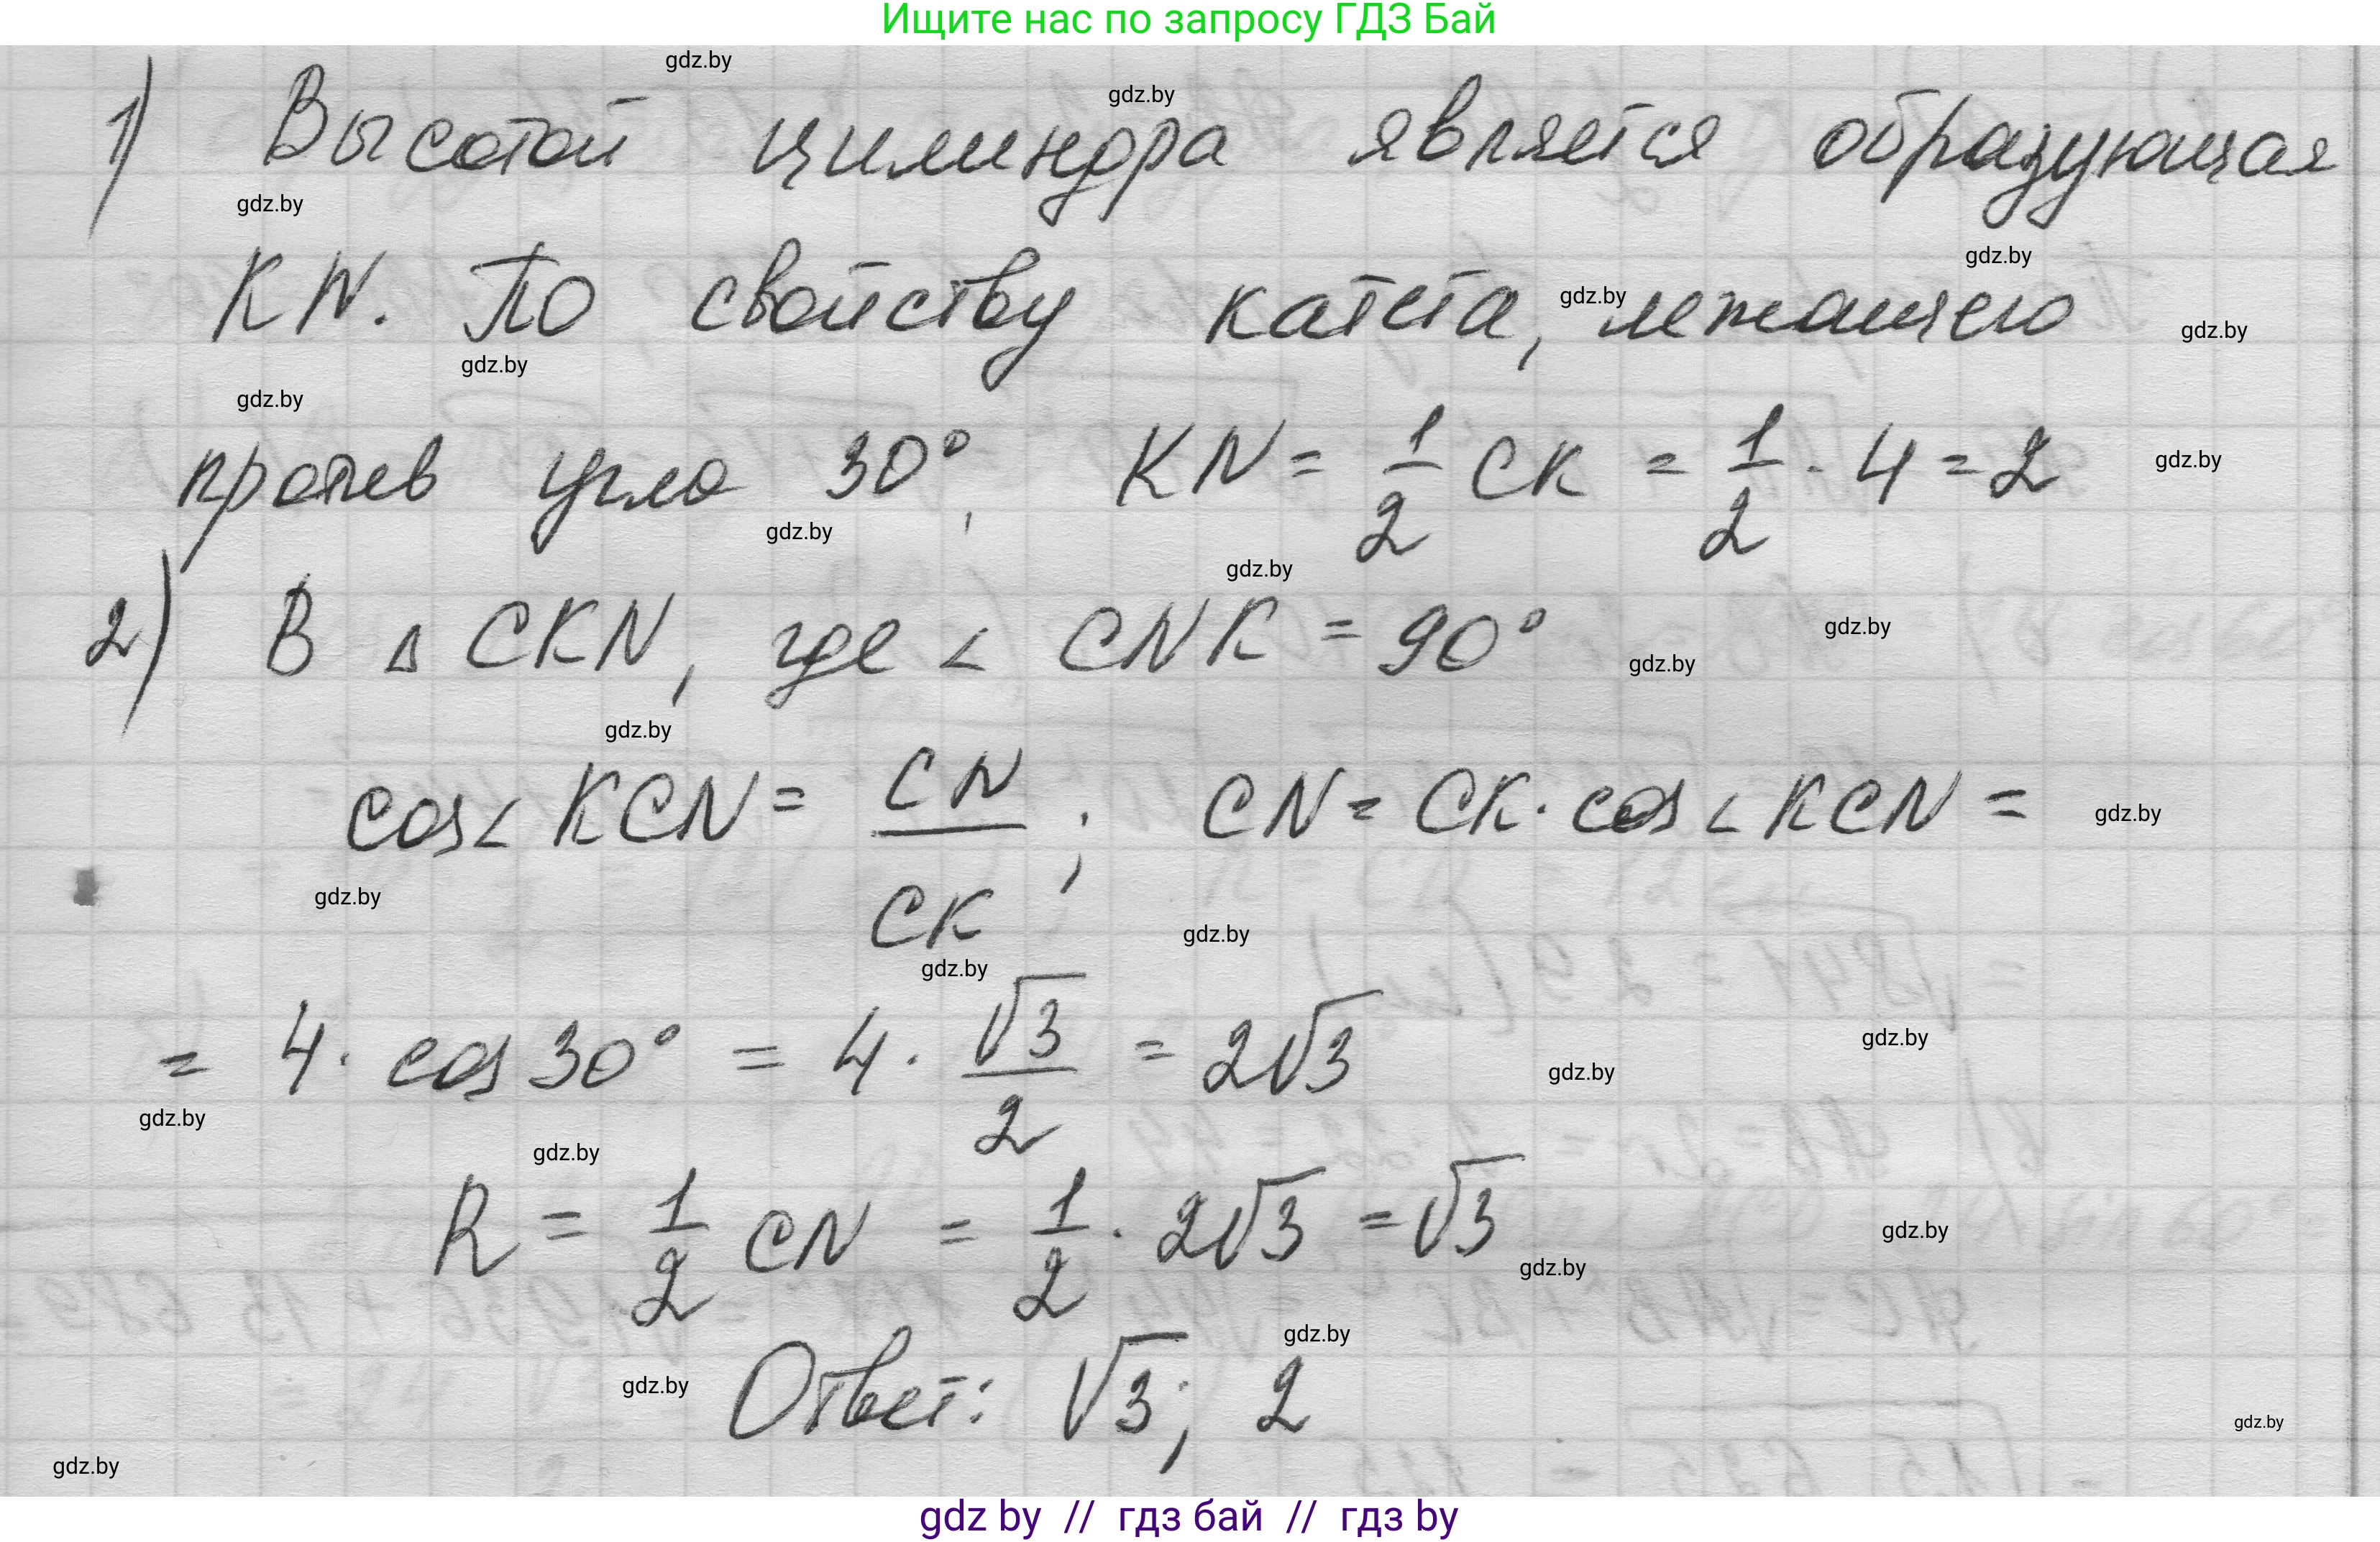 Ищите нас по запросу ГДЗ Бай
gdz.by
gdz.by
1) Высотой цилиндра является образующая
gdz.by
gdz.by
KN. По свойству катета, лежащего
gdz.by
gdz.by
gdz.by
gdz.by
против угла 30°, KN = 1/2 CK = 1/2 · 4 = 2
gdz.by
gdz.by
gdz.by
2) В △ CKN, где < CNK = 90°
gdz.by
gdz.by
gdz.by
cos < KCN = CN/CK ; CN = CK · cos < KCN =
gdz.by
gdz.by
gdz.by
gdz.by
= 4 · cos 30° = 4 · √3/2 = 2√3
gdz.by
gdz.by
gdz.by
gdz.by
R = 1/2 CN = 1/2 · 2√3 = √3
gdz.by
gdz.by
gdz.by
gdz.by
Ответ: √3; 2
gdz.by
gdz.by
gdz by // гдз бай // гдз by